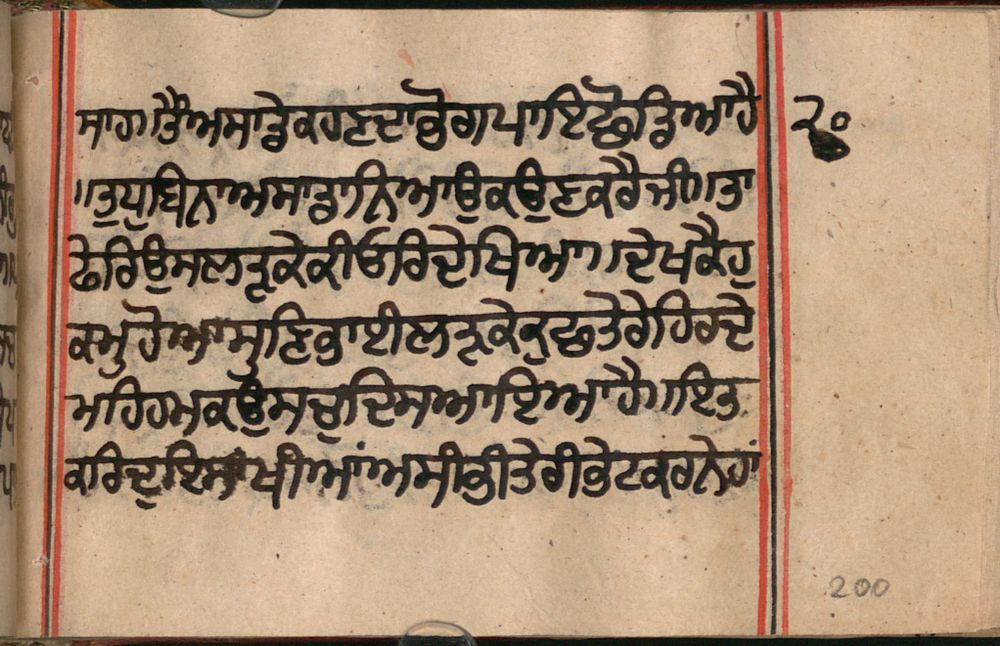 ਸਾਹ॥ਤੈਅਸਾਡੇਕਹਣਦਾਭੋਗਪਾਇਛੋਡਿਆਹੈ
੨੦
॥ਤੁਧੁਬਿਨਾਅਸਾਡਾਨਿਆਉਕਉਣਕਰੈਜੀ॥ਤਾ
ਫੇਰਿਉਸਲੜਕੇਕੀਓਰਿਦੇਖਿਆ॥ਦੇਖਕੈਹੁ
ਕਮੁਹੋਆਸੁਣਿਭਾਈਲੜਕੇਕੁਛਤੇਰੇਹਿਰਦੈ
ਮਹਿਹਮਕਉਸਚੁਦਿਸਆਇਆਹੈ॥ਇਤੁ
ਕਰਿਦੁਇਸਾਖੀਆਂਅਸੀਭੀਤੇਰੀਭੇਟਕਰਨੇਹਾਂ
200